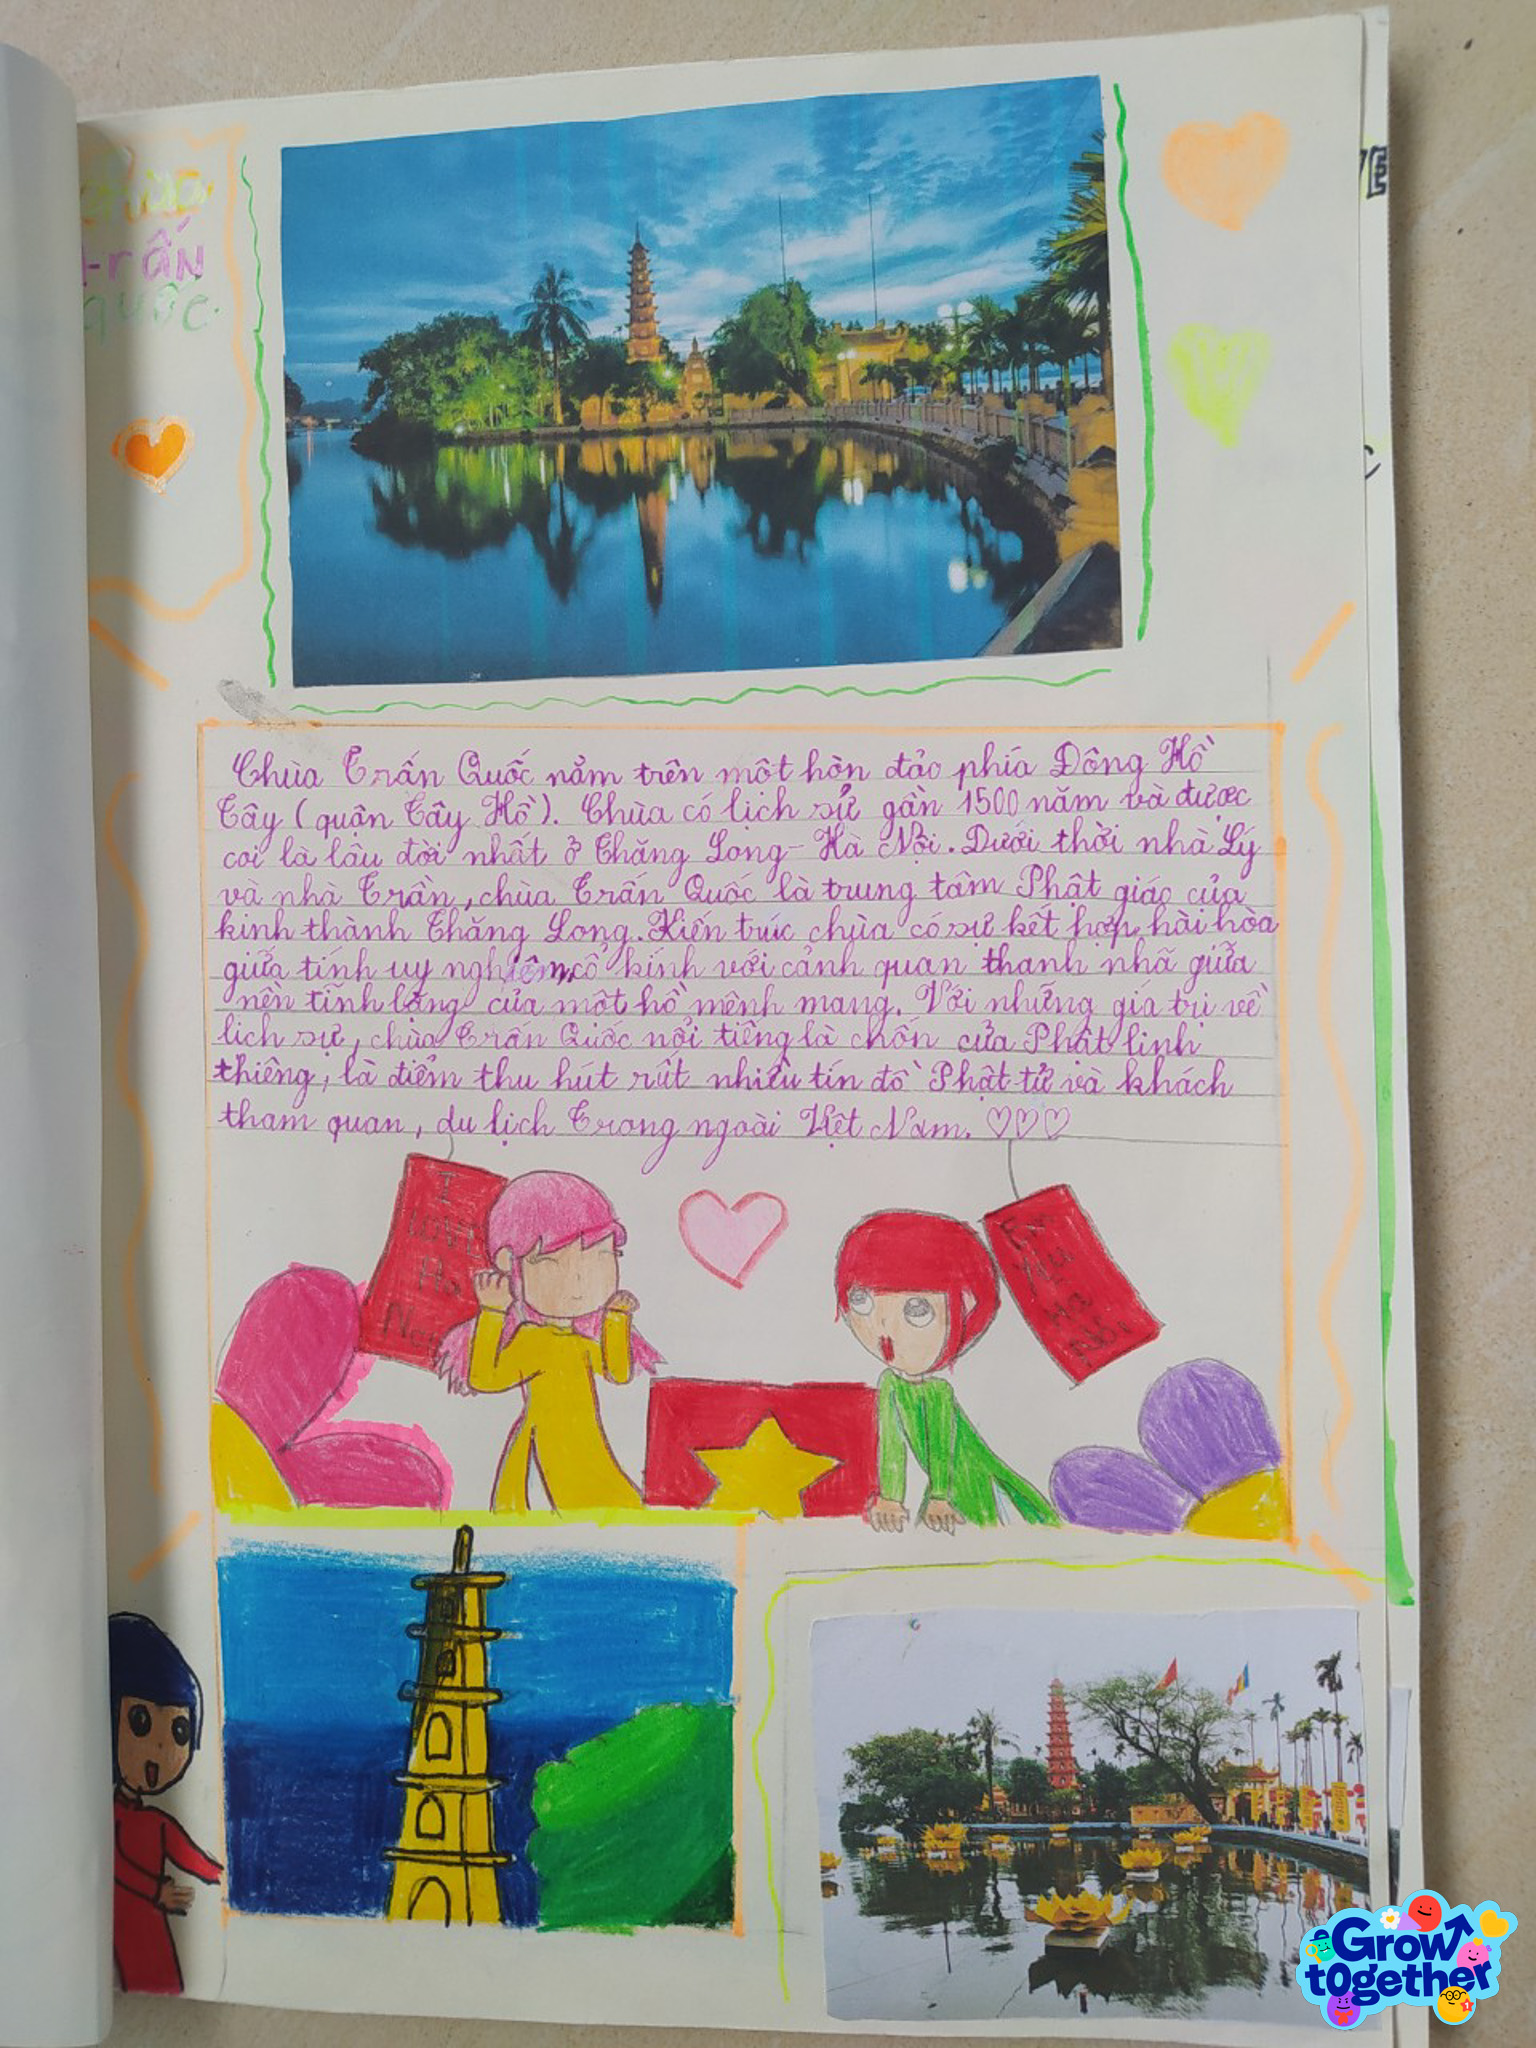 chùa
trấn
quốc.
Chùa Trấn Quốc nằm trên một hòn đảo phía Đông Hồ
Tây (quận Tây Hồ). Chùa có lịch sử gần 1500 năm và được
coi là lâu đời nhất ở Thăng Long - Hà Nội. Dưới thời nhà Lý
và nhà Trần, chùa Trấn Quốc là trung tâm Phật giáo của
kinh thành Thăng Long. Kiến trúc chùa có sự kết hợp hài hòa
giữa tính uy nghiêm, cổ kính với cảnh quan thanh nhã giữa
nền tĩnh lặng của một hồ mênh mang. Với những giá trị về
lịch sự, chùa Trấn Quốc nổi tiếng là chốn cửa Phật linh
thiêng, là điểm thu hút rất nhiều tín đồ Phật tử và khách
tham quan, du lịch Trong ngoài Việt Nam. ♡♡♡
I
LOVE
Ha
Noi
Em
Yêu
Hà
Nội
Grow
together